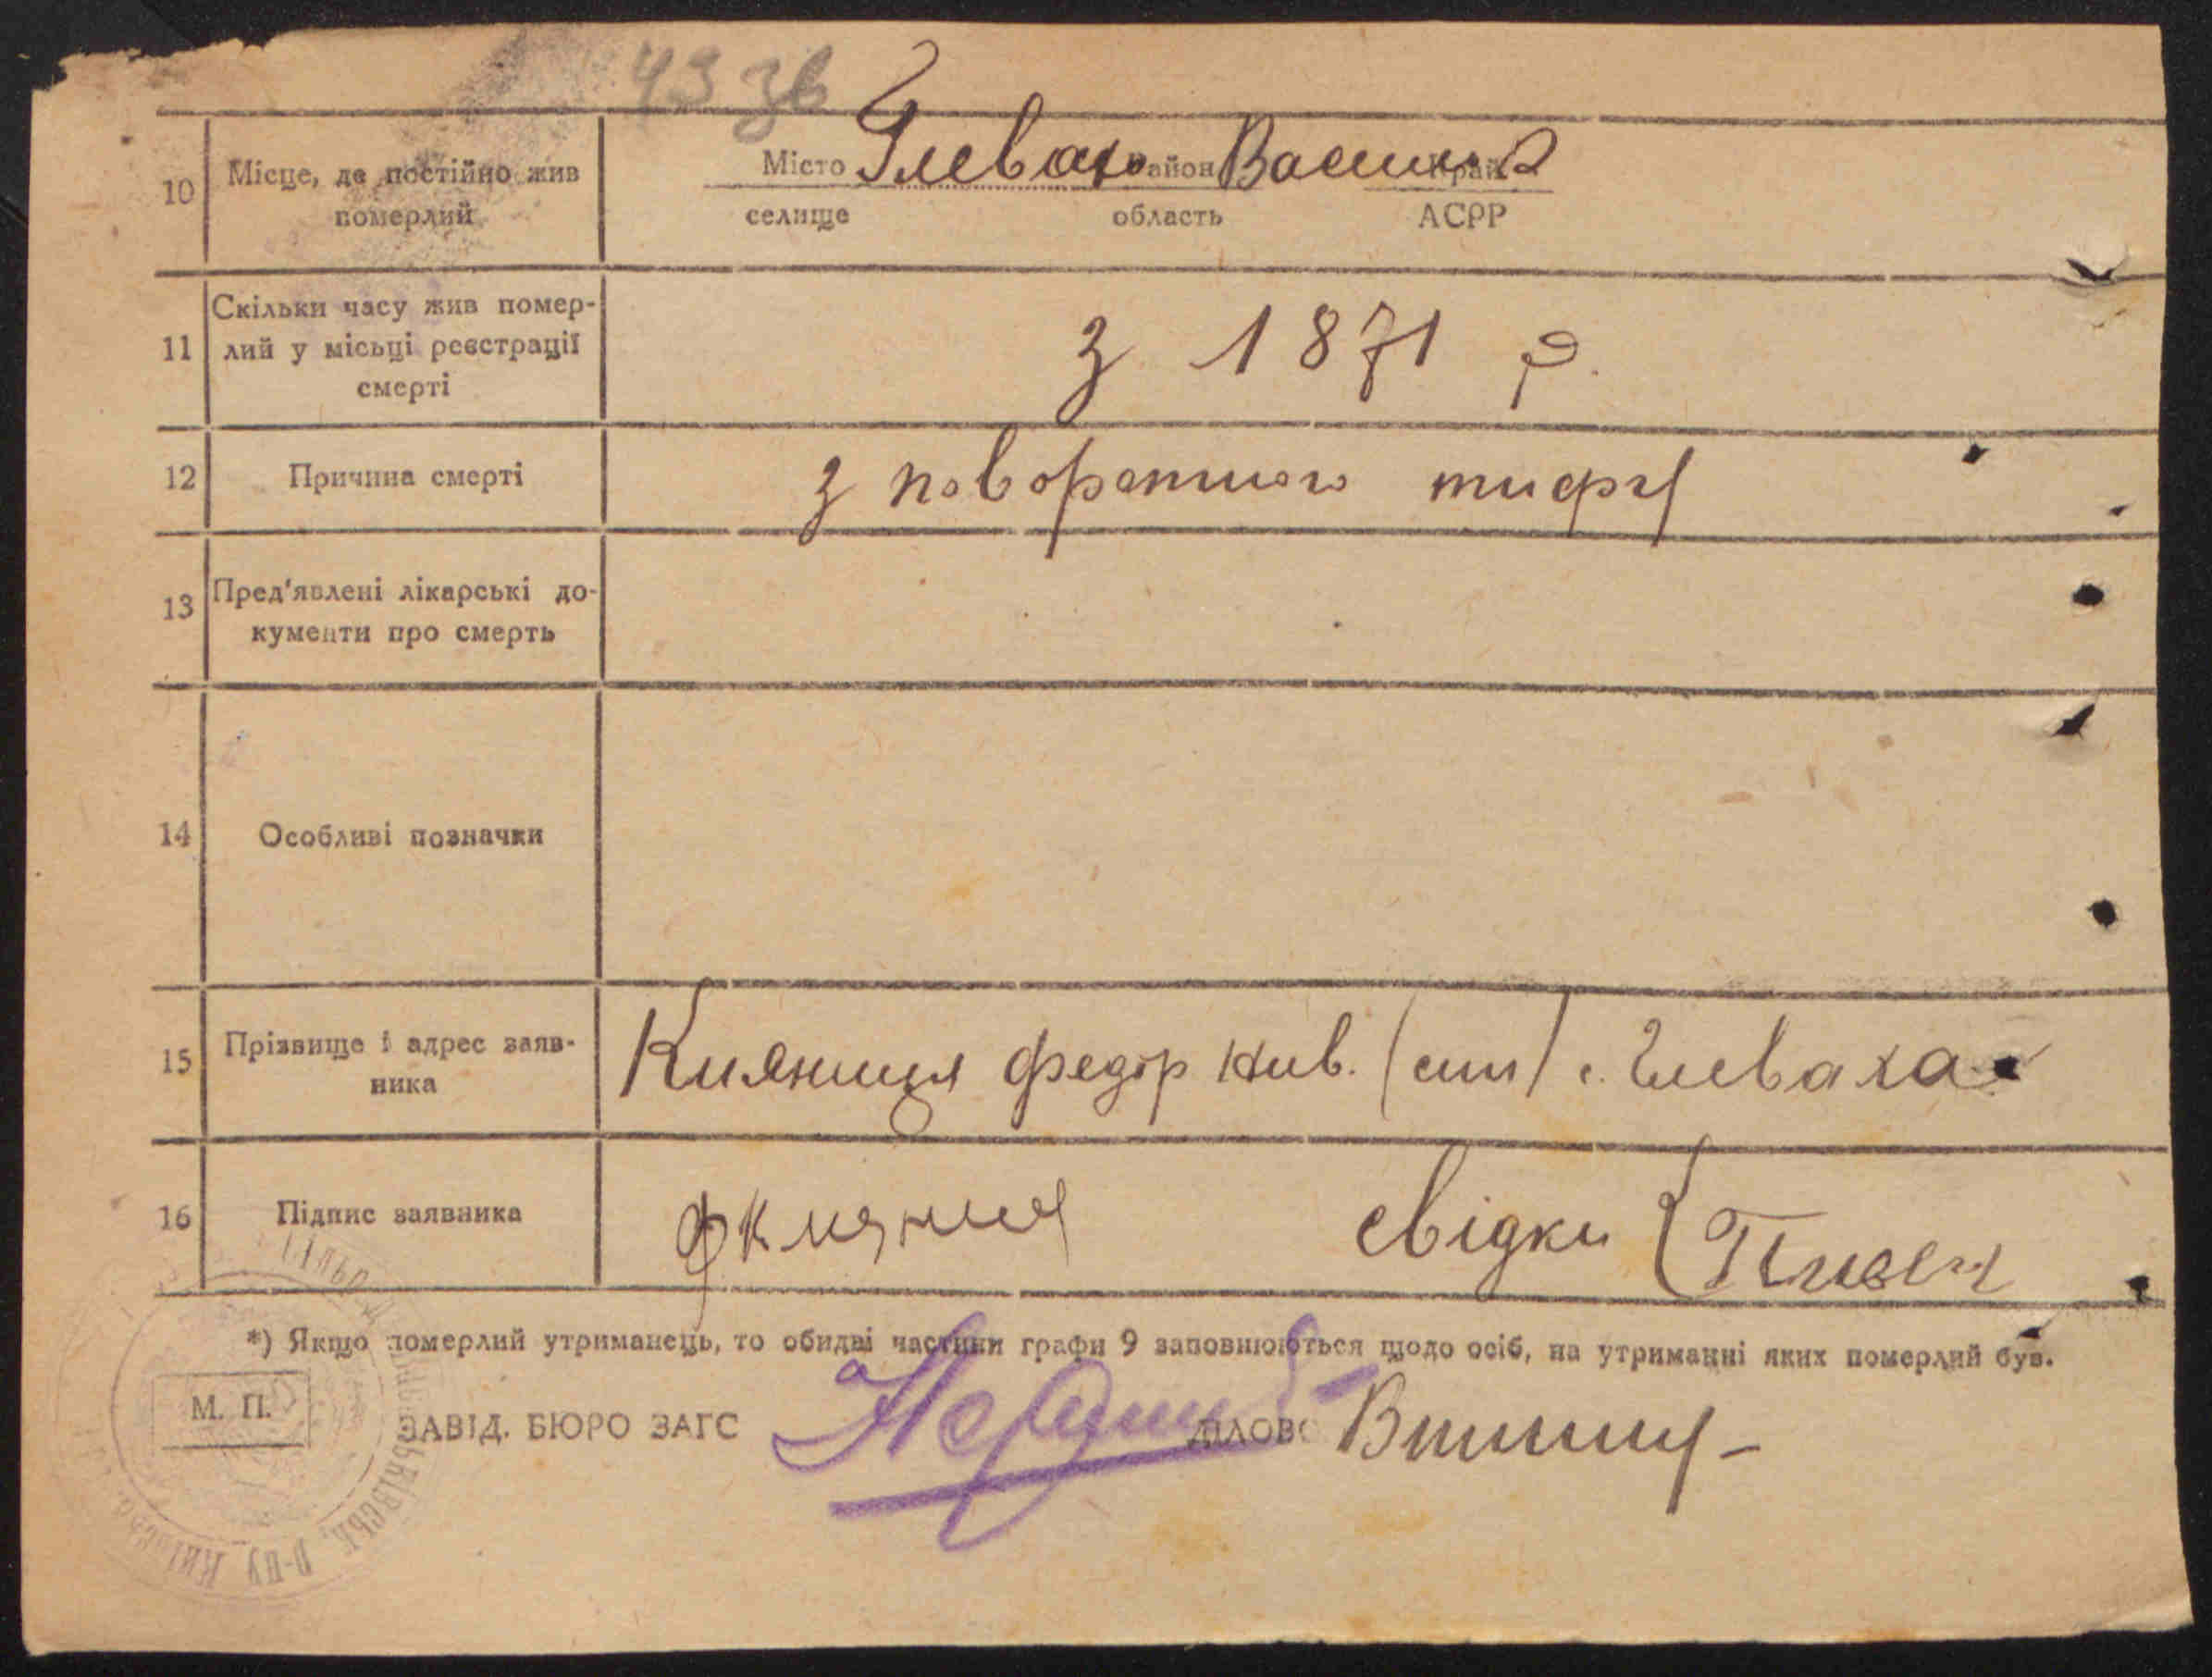 43 зв
10 Місце, де постійно жив померлий
Місто Глеваха Район Васильк Край
селище область АСРР
11 Скільки часу жив помер-
лий у місьці реєстрації
смерті
з 1871 р.
12 Причина смерті з поворотного тифу
13 Пред'явлені лікарські до-
кументи про смерть
14 Особливі позначки
15 Прізвище і адрес заяв-
ника
Кияниця Федор Ив. (син) с. Глеваха
16 Підпис заявника свідки
*) Якщо померлий утриманець, то обидві частини графи 9 заповнюються щодо осіб, на утриманні яких померлий був.
М. П.
ЗАВІД. БЮРО ЗАГС ДІЛОВ
Р-НУ